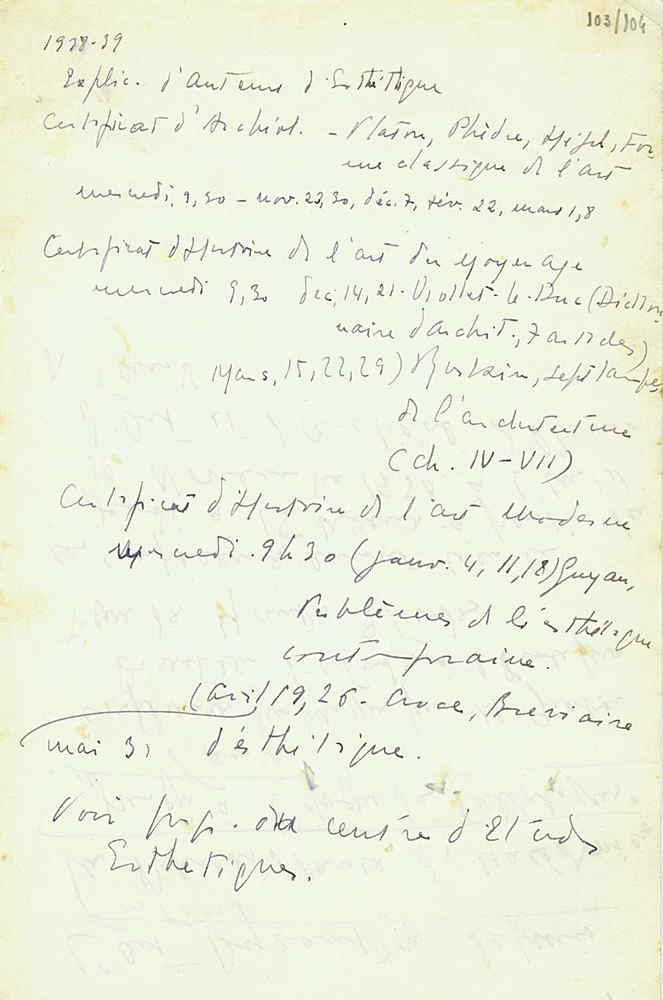 103/104
1938-39
Explic. d'auteurs d'Esthétique
Certificat d'Archéol. - Platon, Phèdre, Hegel, For-
me classique de l'art
mercredi, 9,30 - nov. 23,30, déc. 7, fév. 22, mars 1,8
Certificat d'Histoire de l'art du Moyen age
mercredi 9,30 déc. 14, 21. Viollet-le-Duc (Diction-
naire d'archit., 7 articles)
Mars, 15, 22, 29) Ruskin, sept lampes
de l'architecture
(ch. IV-VII)
Certificat d'Histoire de l'art moderne
Mercredi. 9h30 (janv. 4, 11, 18) Guyau,
Problèmes de l'esthétique
contemporaine.
(avril 19, 26. Croce, Breviaire
mai 3) d'esthétique.
Voir centre d'Etudes
Esthetiques.